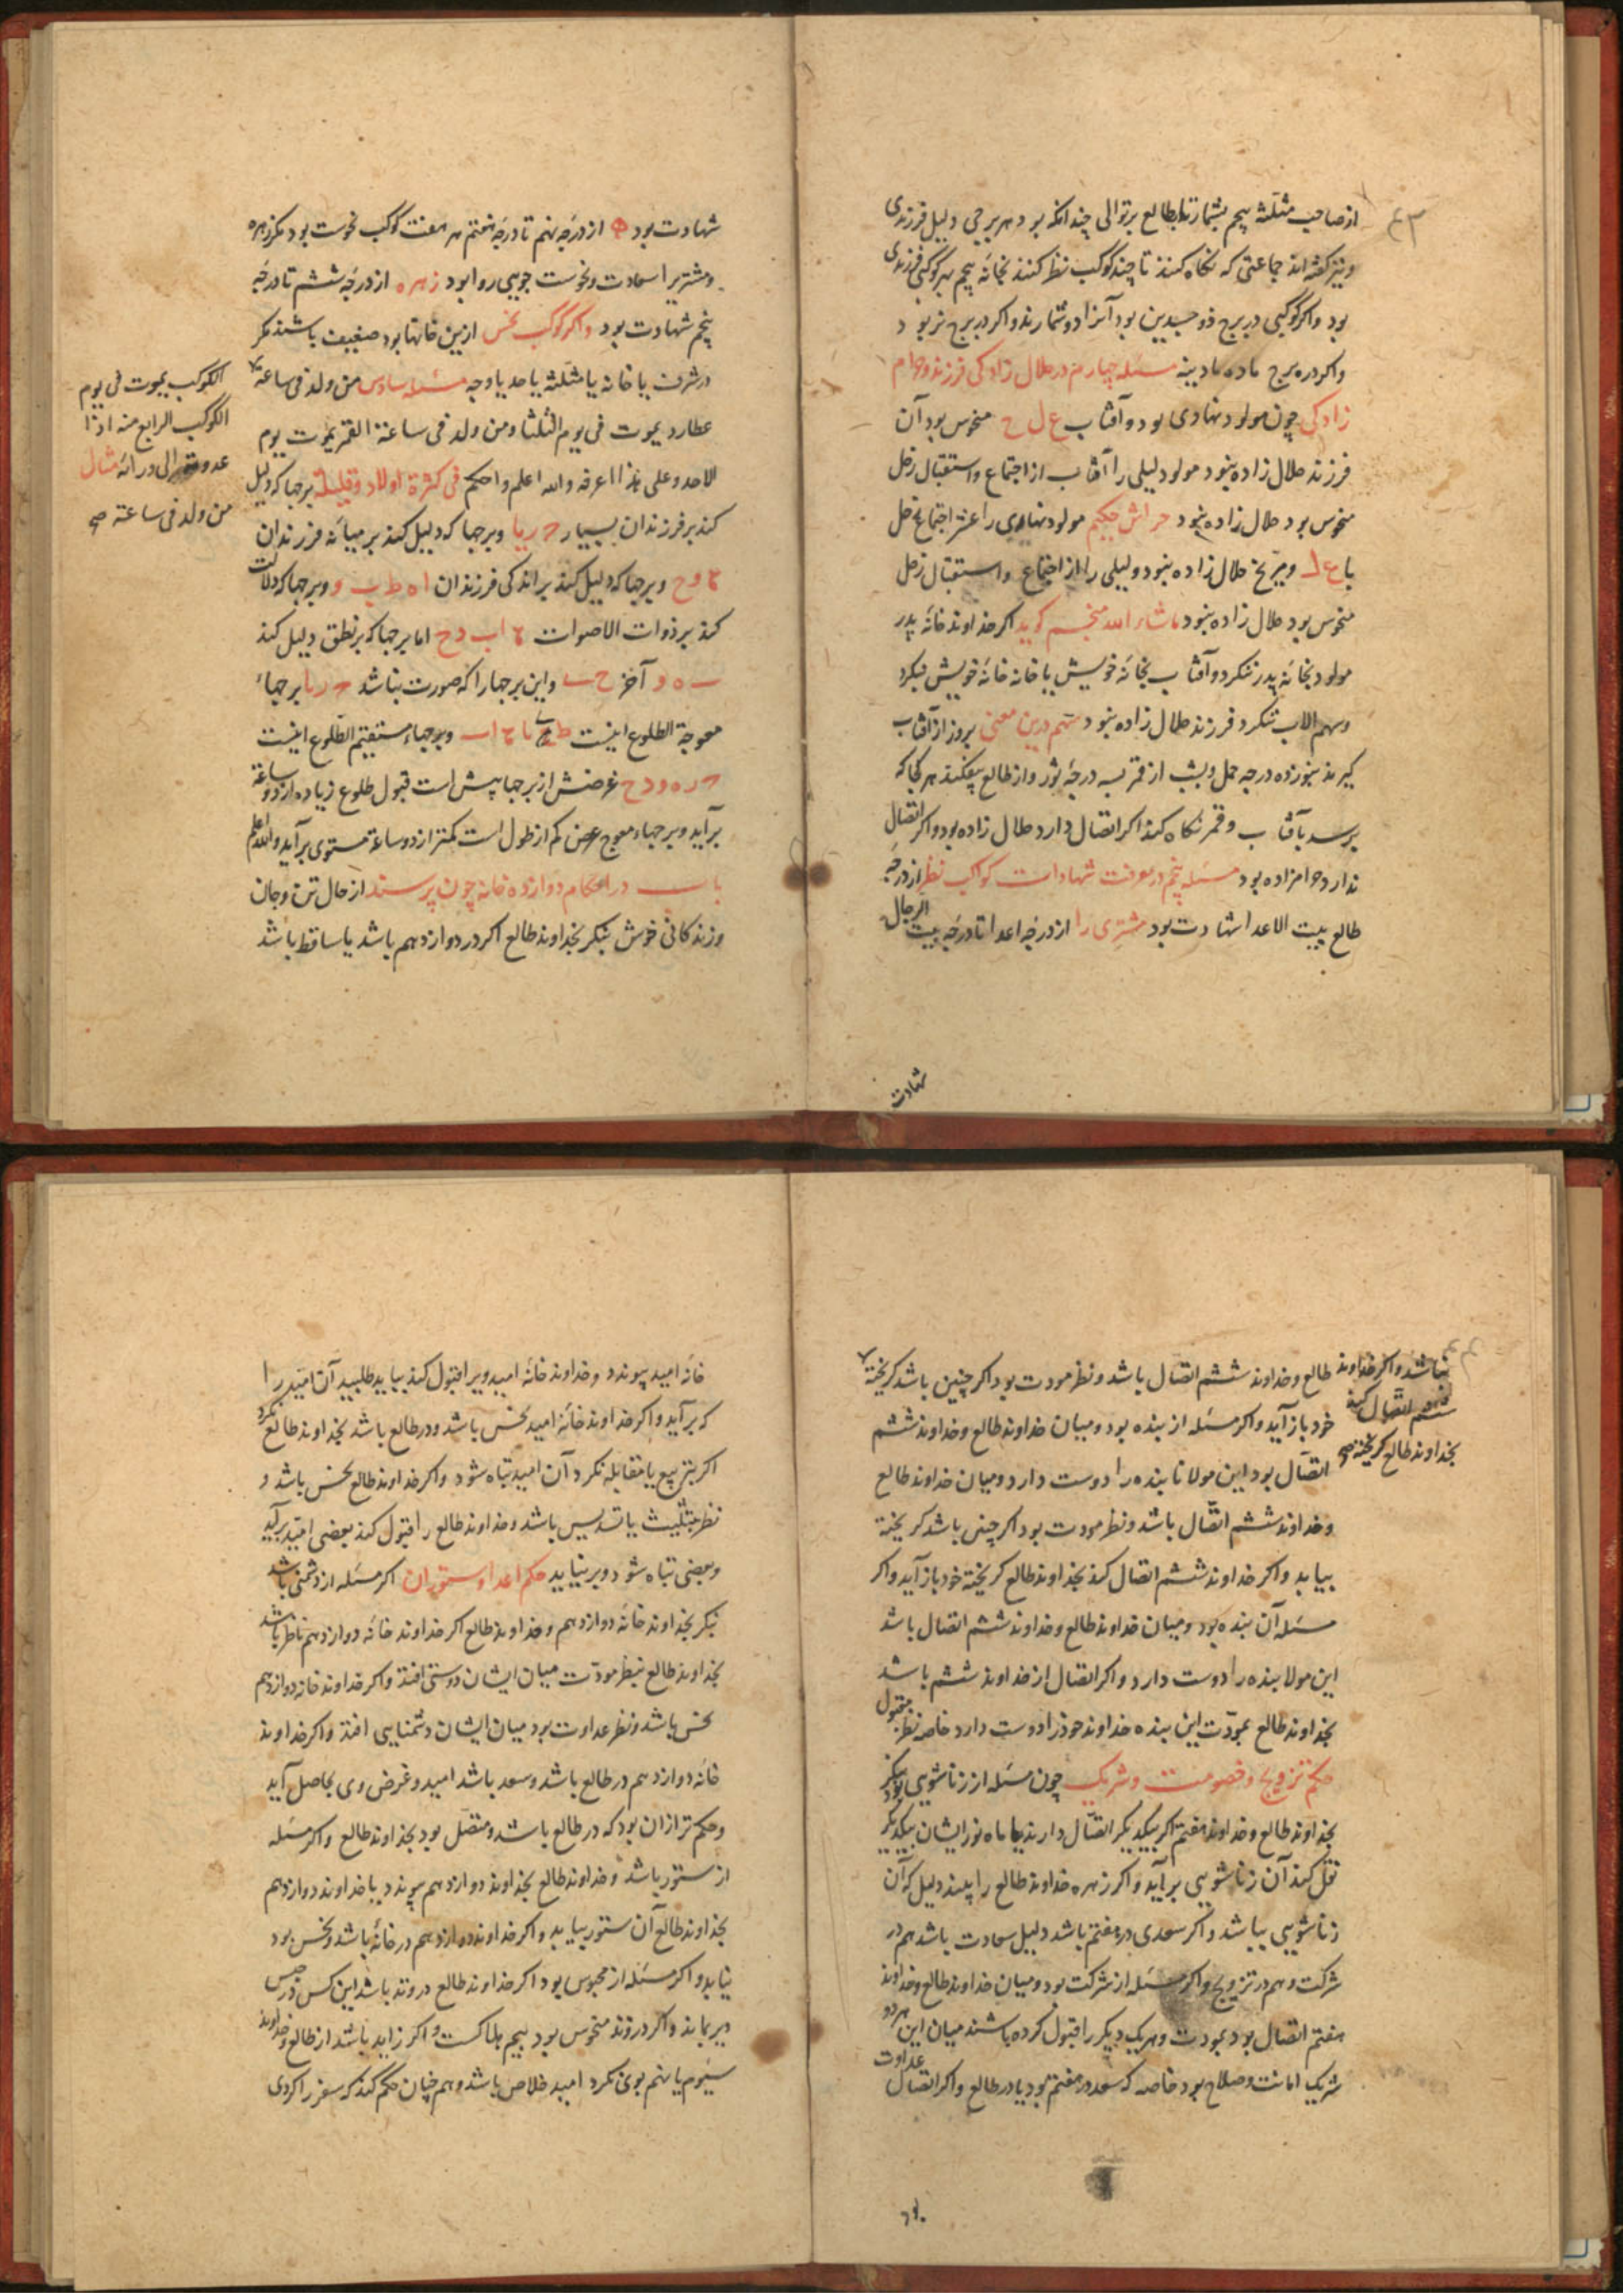 ۴۳
از صاحب مثلثه پنجم بشمارند تا بطالع بر توالی چندانکه بود هر برجی دلیل فرزندی
و نیز گفته اند جماعتی که نکاه کنند تا چند کوکب نظر کنند بخانه پنجم هر کوکبی فرزندی
بود و اکر کوکبی در برج ذو جسدین بود آنرا دو شمارند و اکر در برج نر بود
و اکر در برج ماده مادینه مسئله چهارم در حلال زادکی فرزند و حرام
زادکی چون مولود نهاری بود و آفتاب ع ل ح منحوس بود آن
فرزند حلال زاده نبود مولود لیلی را آفتاب از اجتماع و استقبال زحل
منحوس بود حلال زاده نبود حکیم مولود نهاری را اجتماع زحل
با و مریخ حلال زاده نبود و لیلی را از اجتماع و استقبال زحل
منحوس بود حلال زاده نبود ماشاء الله منجم کوید اکر خداوند خانه پدر
مولود بخانه پدر ننکرد و آفتاب بخانه خویش یا خانه خانه خویش ننکرد
و سهم الاب ننکرد فرزند حلال زاده نبود سهم درین معنی بروز از آفتاب
کیرند بنوزده درجه حمل و بشب از قمر بسه درجه ثور و از طالع بیفکنند هر کجا که
برسد بآفتاب و قمر نکاه کند اکر اتصال دارد حلال زاده بود و اکر اتصال
ندارد حرامزاده بود مسئله پنجم در معرفت شهادات کواکب نظر از درجه
طالع بیت الاعدا شهادت بود مشتری را از درجه اعدا تا درجه بیت الرجال
شهادت
شهادت بود از درجه نهم تا درجه هفتم هر هفت کوکب نحوست بود مکر زهره
و مشتریرا سعادت و نحوست جویی روا بود زهره از درجه ششم تا درجه
پنجم شهادت بود و اکر کوکب نحس ازین خانها بود ضعیف باشند مکر
در شرف یا خانه یا مثلثه یا حد یا وجه مسئله سادس من ولد فی ساعة
عطارد یموت فی یوم الثلثا و من ولد فی ساعة القمر یموت یوم
الاحد و علی هذا اعرفه والله اعلم و احکم فی کثرة اولاد و قلیله برجها که دلیل
کند بر فرزندان بسیار و برجها که دلیل کند بر میانه فرزندان
و برجها که دلیل کند بر اندکی فرزندان و برجها که دلالت
کند بر ذوات الاصوات اما برجها که بر نطق دلیل کند
آخر و این برجها را که صورت بباشد برجهاء
معوجة الطلوع اینست و برجهاء مستقیم الطلوع اینست
غرضش از برجها پیش است قبول طلوع زیاده از دو ساعة
برآید و برجهاء معوج عرض کم از طول است کمتر از دو ساعة مستوی برآید والله اعلم
باب در احکام دوازده خانه چون پرسند از حال تن و جان
و زندکانی خوش بنکر بخداوند طالع اکر در دوازدهم باشد یا ساقط باشد
الکوکب یموت فی یوم
الکوکب الرابع منه اذا
عد الی ورائه مثال
من ولد فی ساعة صح
نباشد و اکر خداوند طالع و خداوند ششم اتصال باشد و نظر مودت بود اکر چنین باشد کریخته
ششم اتصال کند
بخداوند طالع کریخته صح
خود باز آید و اکر مسئله از بنده بود و میان خداوند طالع و خداوند ششم
اتصال بود این مولانا بنده را دوست دارد و میان خداوند طالع
و خداوند ششم اتصال باشد و نظر مودت بود اکر چنین باشد کریخته
بیابد و اکر خداوند ششم اتصال کند بخداوند طالع کریخته خود باز آید و اکر
مسئله آن بنده بود و میان خداوند طالع و خداوند ششم اتصال باشد
این مولا بنده را دوست دارد و اکر اتصال از خداوند ششم باشد
بخداوند طالع بمودت این بنده خداوند خود را دوست دارد خاصه نظر بقبول
حکم تزویج و خصومت و شریک چون مسئله از زناشویی بود بنکر
بخداوند طالع و خداوند هفتم اکر بیکدیکر اتصال دارند یا ماه نور ایشان بیکدیکر
نقل کند آن زناشویی برآید و اکر زهره خداوند طالع را بیند دلیل که آن
زناشویی بباشد و اکر سعدی در هفتم باشد دلیل سعادت باشد هم در
شرکت و هم در تزویج و اکر مسئله از شرکت بود و میان خداوند طالع و خداوند
هفتم اتصال بود بمودت و هر یک دیکر را قبول کرده باشند میان این هر دو
شریک امانت و صلاح بود خاصه که سعد در هفتم بود یا در طالع و اکر اتصال عداوت
خانه امید پیوندد و خداوند خانه امید ویرا قبول کند بیاید طلبید آن امید را
که برآید و اکر خداوند خانه امید نحس باشد و در طالع باشد بخداوند طالع نکرد
اکر بتربیع یا مقابله نکرد آن امید تباه شود و اکر خداوند طالع نحس باشد و
نظر بتثلیث یا تسدیس باشد و خداوند طالع را قبول کند بعضی امید برآید
و بعضی تباه شود و برنیاید حکم اعدا و ستوران اکر مسئله از دشمنی باشد
بنکر بخداوند خانه دوازدهم و خداوند طالع اکر خداوند خانه دوازدهم ناظر باشد
بخداوند طالع بنظر مودت میان ایشان دوستی افتد و اکر خداوند خانه دوازدهم
نحس باشد و نظر عداوت بود میان ایشان دشمنایی افتد و اکر خداوند
خانه دوازدهم در طالع باشد و سعد باشد امید و غرض وی بحاصل آید
و حکم تر ازان بود که در طالع باشد و متصل بود بخداوند طالع و اکر مسئله
از ستور باشد و خداوند طالع بخداوند دوازدهم پیوندد یا خداوند دوازدهم
بخداوند طالع آن ستور بیابد و اکر خداوند دوازدهم در خانه باشد و نحس بود
نیابد و اکر مسئله از محبوس بود اکر خداوند طالع در وتد باشد این کس در حبس
دیر بماند و اکر در وتد منحوس بود بیم هلاکست و اکر زاید باشد از طالع و خداوند
سیوم یا نهم بوی نکرد امید خلاص باشد و هم چنان حکم کند که سفر را کردی